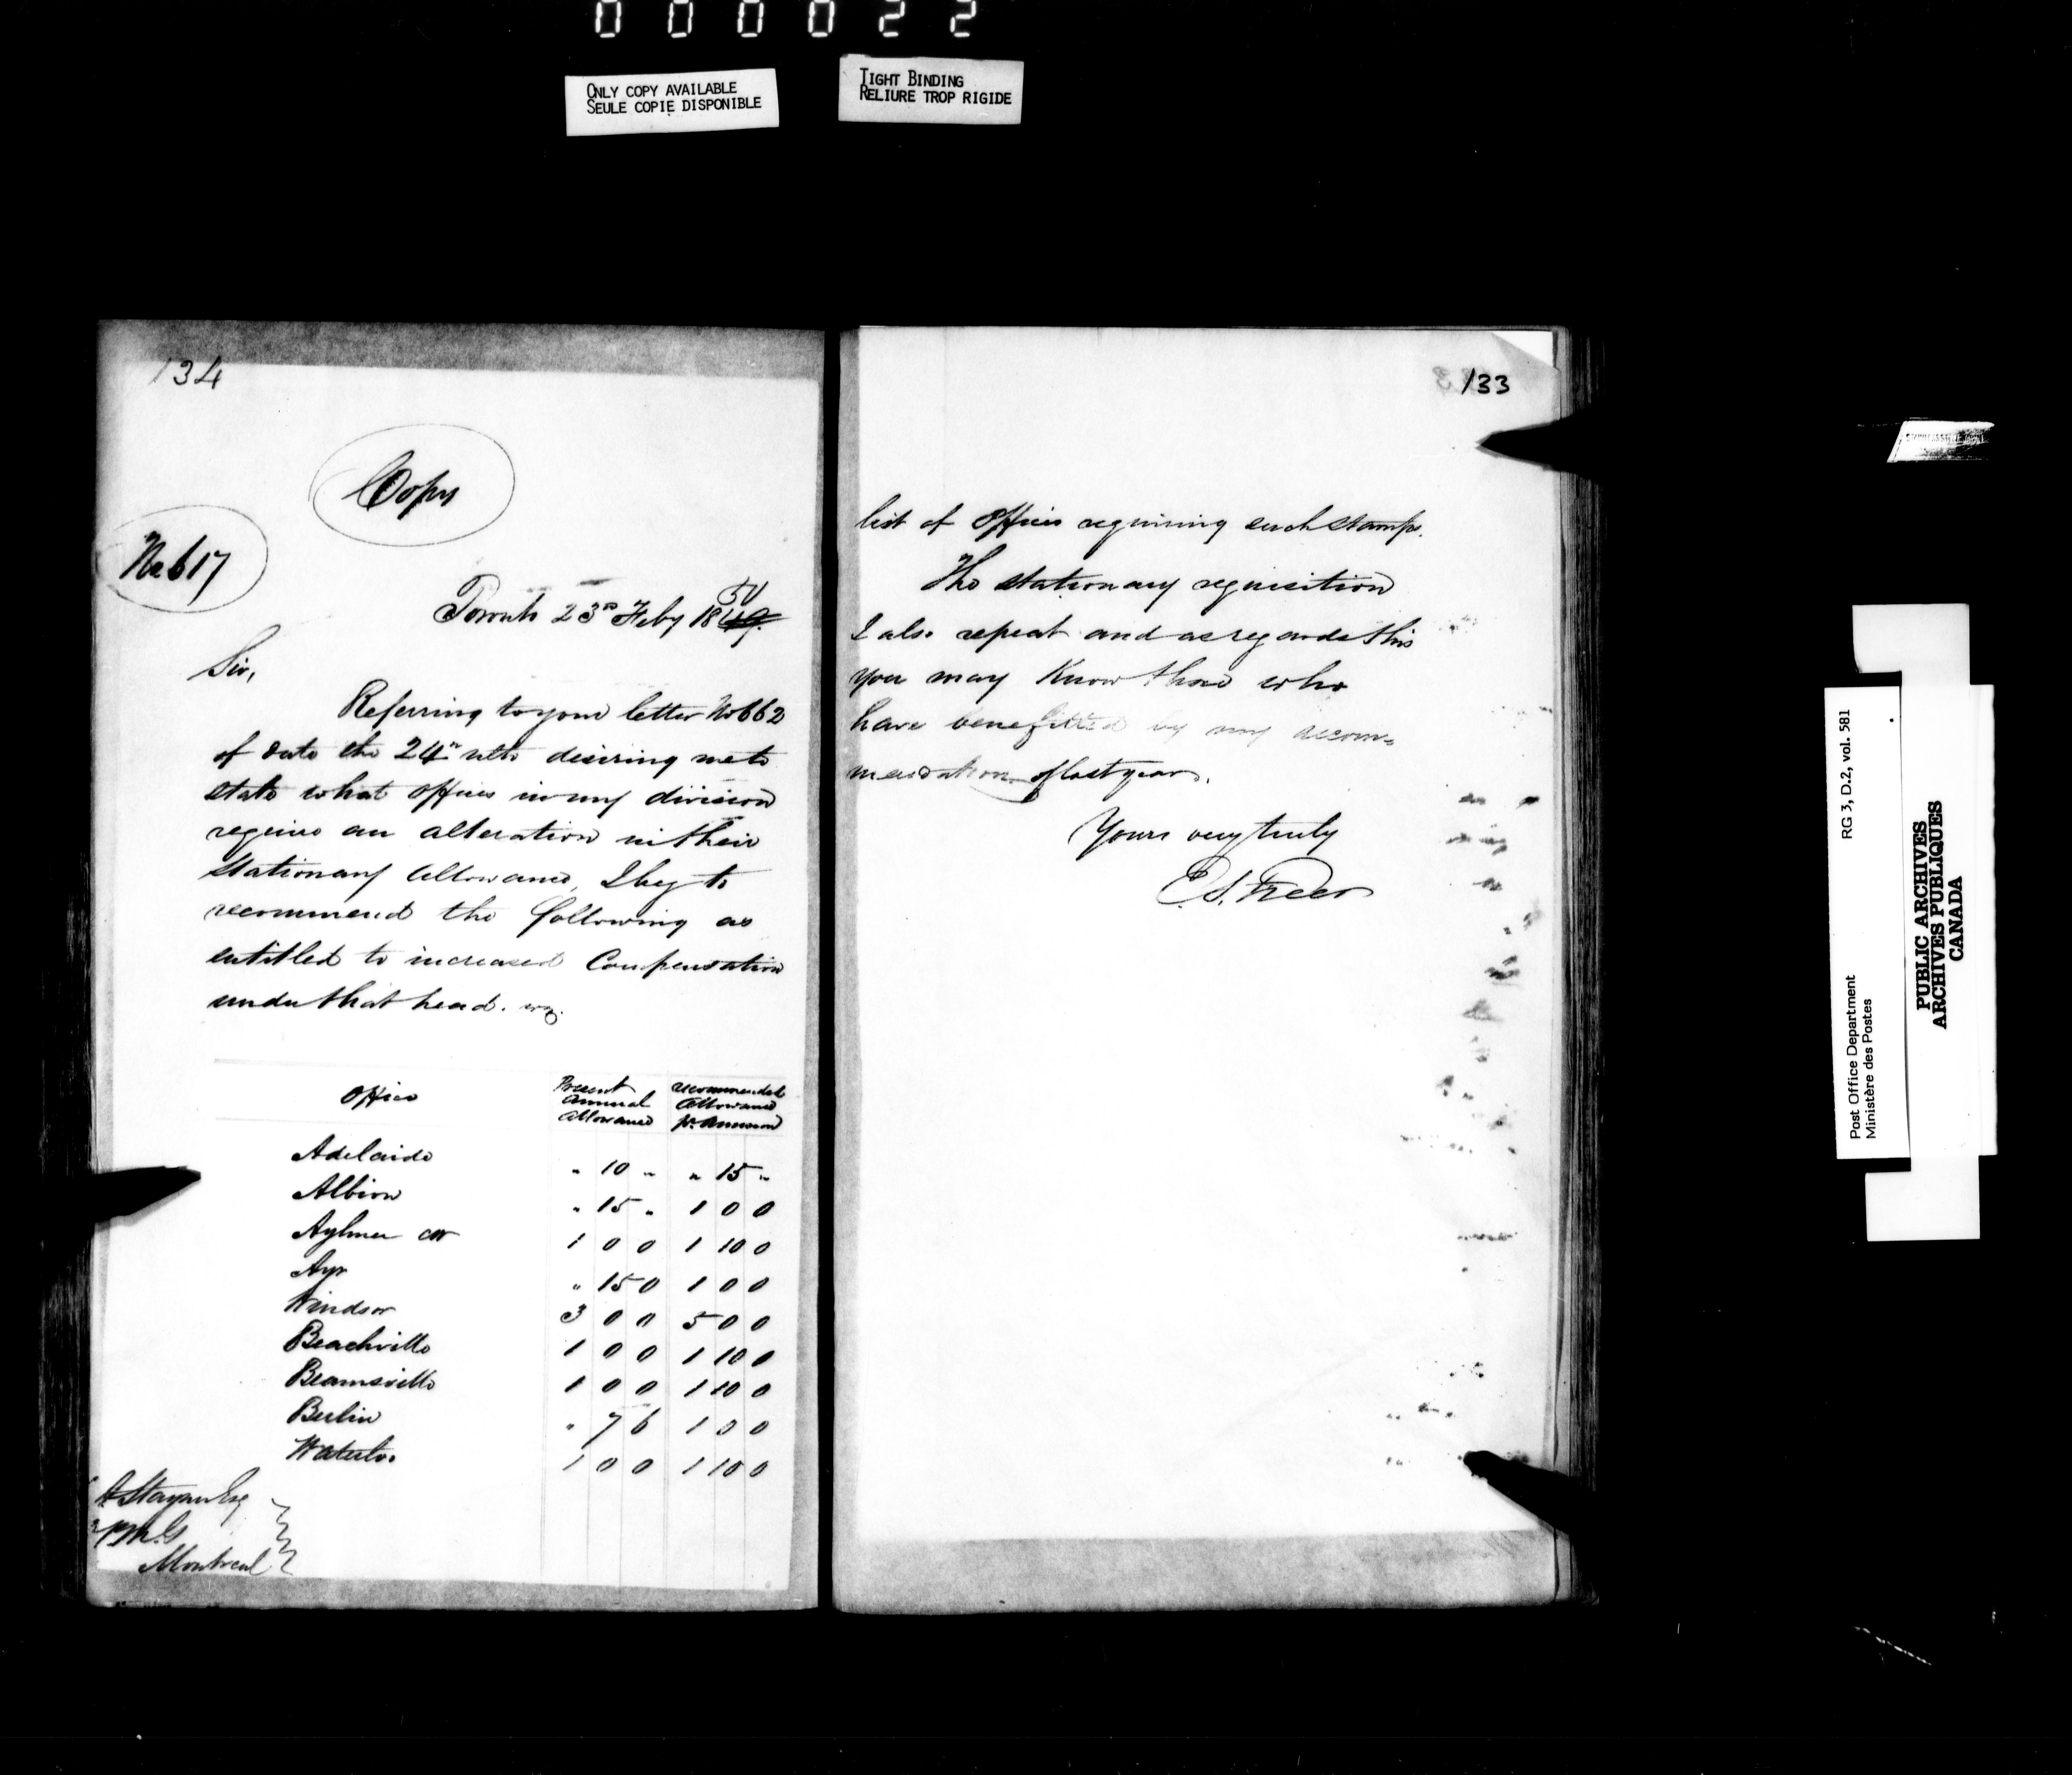 000022
ONLY COPY AVAILABLE
SEULE COPIE DISPONIBLE
TIGHT BINDING
RELIURE TROP RIGIDE
134
Copy
No 617
Toronto 23rd Feby 1849. 50
Sir,
Referring to your letter No 662
of date the 24th ulto desiring me to
state what offices in my division
require an alteration in their
Stationary Allowance, I beg to
recommend the following as
entitled to increased Compensation
under that head. viz.
Office
Present Annual Allowance
recommended Allowance pr. Annum
Adelaide " 10 " " 15 "
Albion " 15 " 1 0 0
Aylmer CW 1 0 0 1 10 0
Ayr " 15 0 1 0 0
Windsor 3 0 0 5 0 0
Beachville 1 0 0 1 10 0
Beamsville 1 0 0 1 10 0
Berlin " 7 6 1 0 0
Waterloo 1 0 0 1 10 0
Stayner Esq
PM.G
Montreal
133
list of Offices requiring such stamps.
The stationary requisition
I also repeat and as regards this
you may know those who
have benefitted by my recom-
mendation of last year.
Yours very truly
E.S. Freer
Post Office Department
Ministère des Postes
RG 3, D.2, vol. 581
PUBLIC ARCHIVES
ARCHIVES PUBLIQUES
CANADA